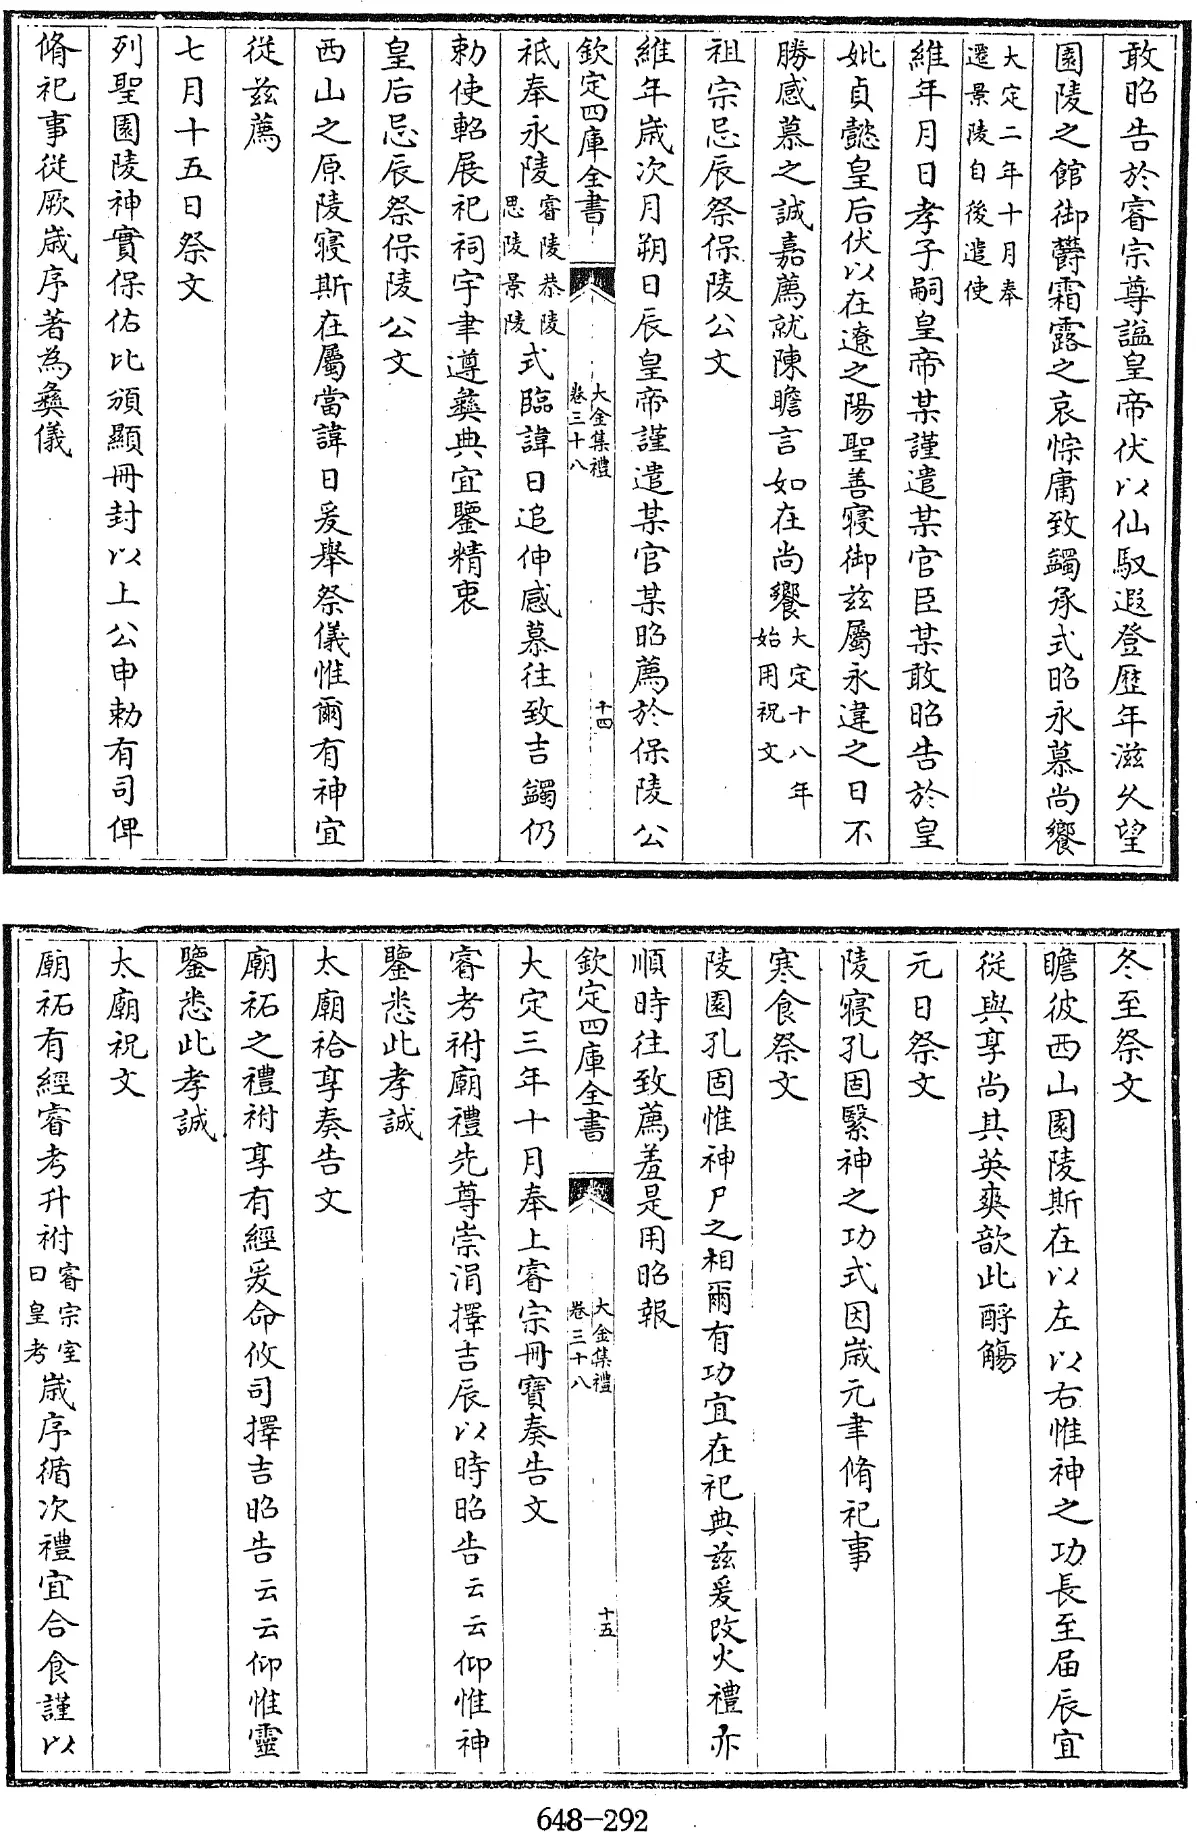 敢昭告於睿宗尊諡皇帝伏以仙馭遐登歴年滋久望
園陵之館御欝霜露之哀悰庸致蠲承式昭永慕尚饗
大定二年十月奉
遷景陵自後遣使
維年月日孝子嗣皇帝某謹遣某官臣某敢昭告於皇
妣貞懿皇后伏以在遼之陽聖善寝御兹屬永違之日不
勝感慕之誠嘉薦就陳瞻言如在尚饗大定十八年
始用祝文
祖宗忌辰祭保陵公文
維年嵗次月朔日辰皇帝謹遣某官某昭薦於保陵公
欽定四庫全書
大金集禮
卷三十八
十四
祗奉永陵睿陵恭陵
思陵景陵式臨諱日追伸感慕往致吉蠲仍
勅使軺展祀祠宇聿遵彝典宜鑒精衷
皇后忌辰祭保陵公文
西山之原陵寝斯在屬當諱日爰舉祭儀惟爾有神宜
従兹薦
七月十五日祭文
列聖園陵神實保佑比頒顯冊封以上公申勅有司俾
脩祀事從厥嵗序著為彝儀
冬至祭文
瞻彼西山園陵斯在以左以右惟神之功長至届辰宜
從與享尚其英爽歆此酹觴
元日祭文
陵寝孔固繄神之功式因嵗元聿脩祀事
寒食祭文
陵園孔固惟神尸之相爾有功宜在祀典兹爰改火禮亦
順時往致薦羞是用昭報
欽定四庫全書
大金集禮
卷三十八
十五
大定三年十月奉上睿宗冊寶奏告文
睿考祔廟禮先尊崇涓擇吉辰以時昭告云云仰惟神
鑒悉此孝誠
太廟祫享奏告文
廟祏之禮祔享有經爰命攸司擇吉昭告云云仰惟靈
鑒悉此孝誠
太廟祝文
廟祏有經睿考升祔睿宗室
曰皇考嵗序循次禮宜合食謹以
648-292